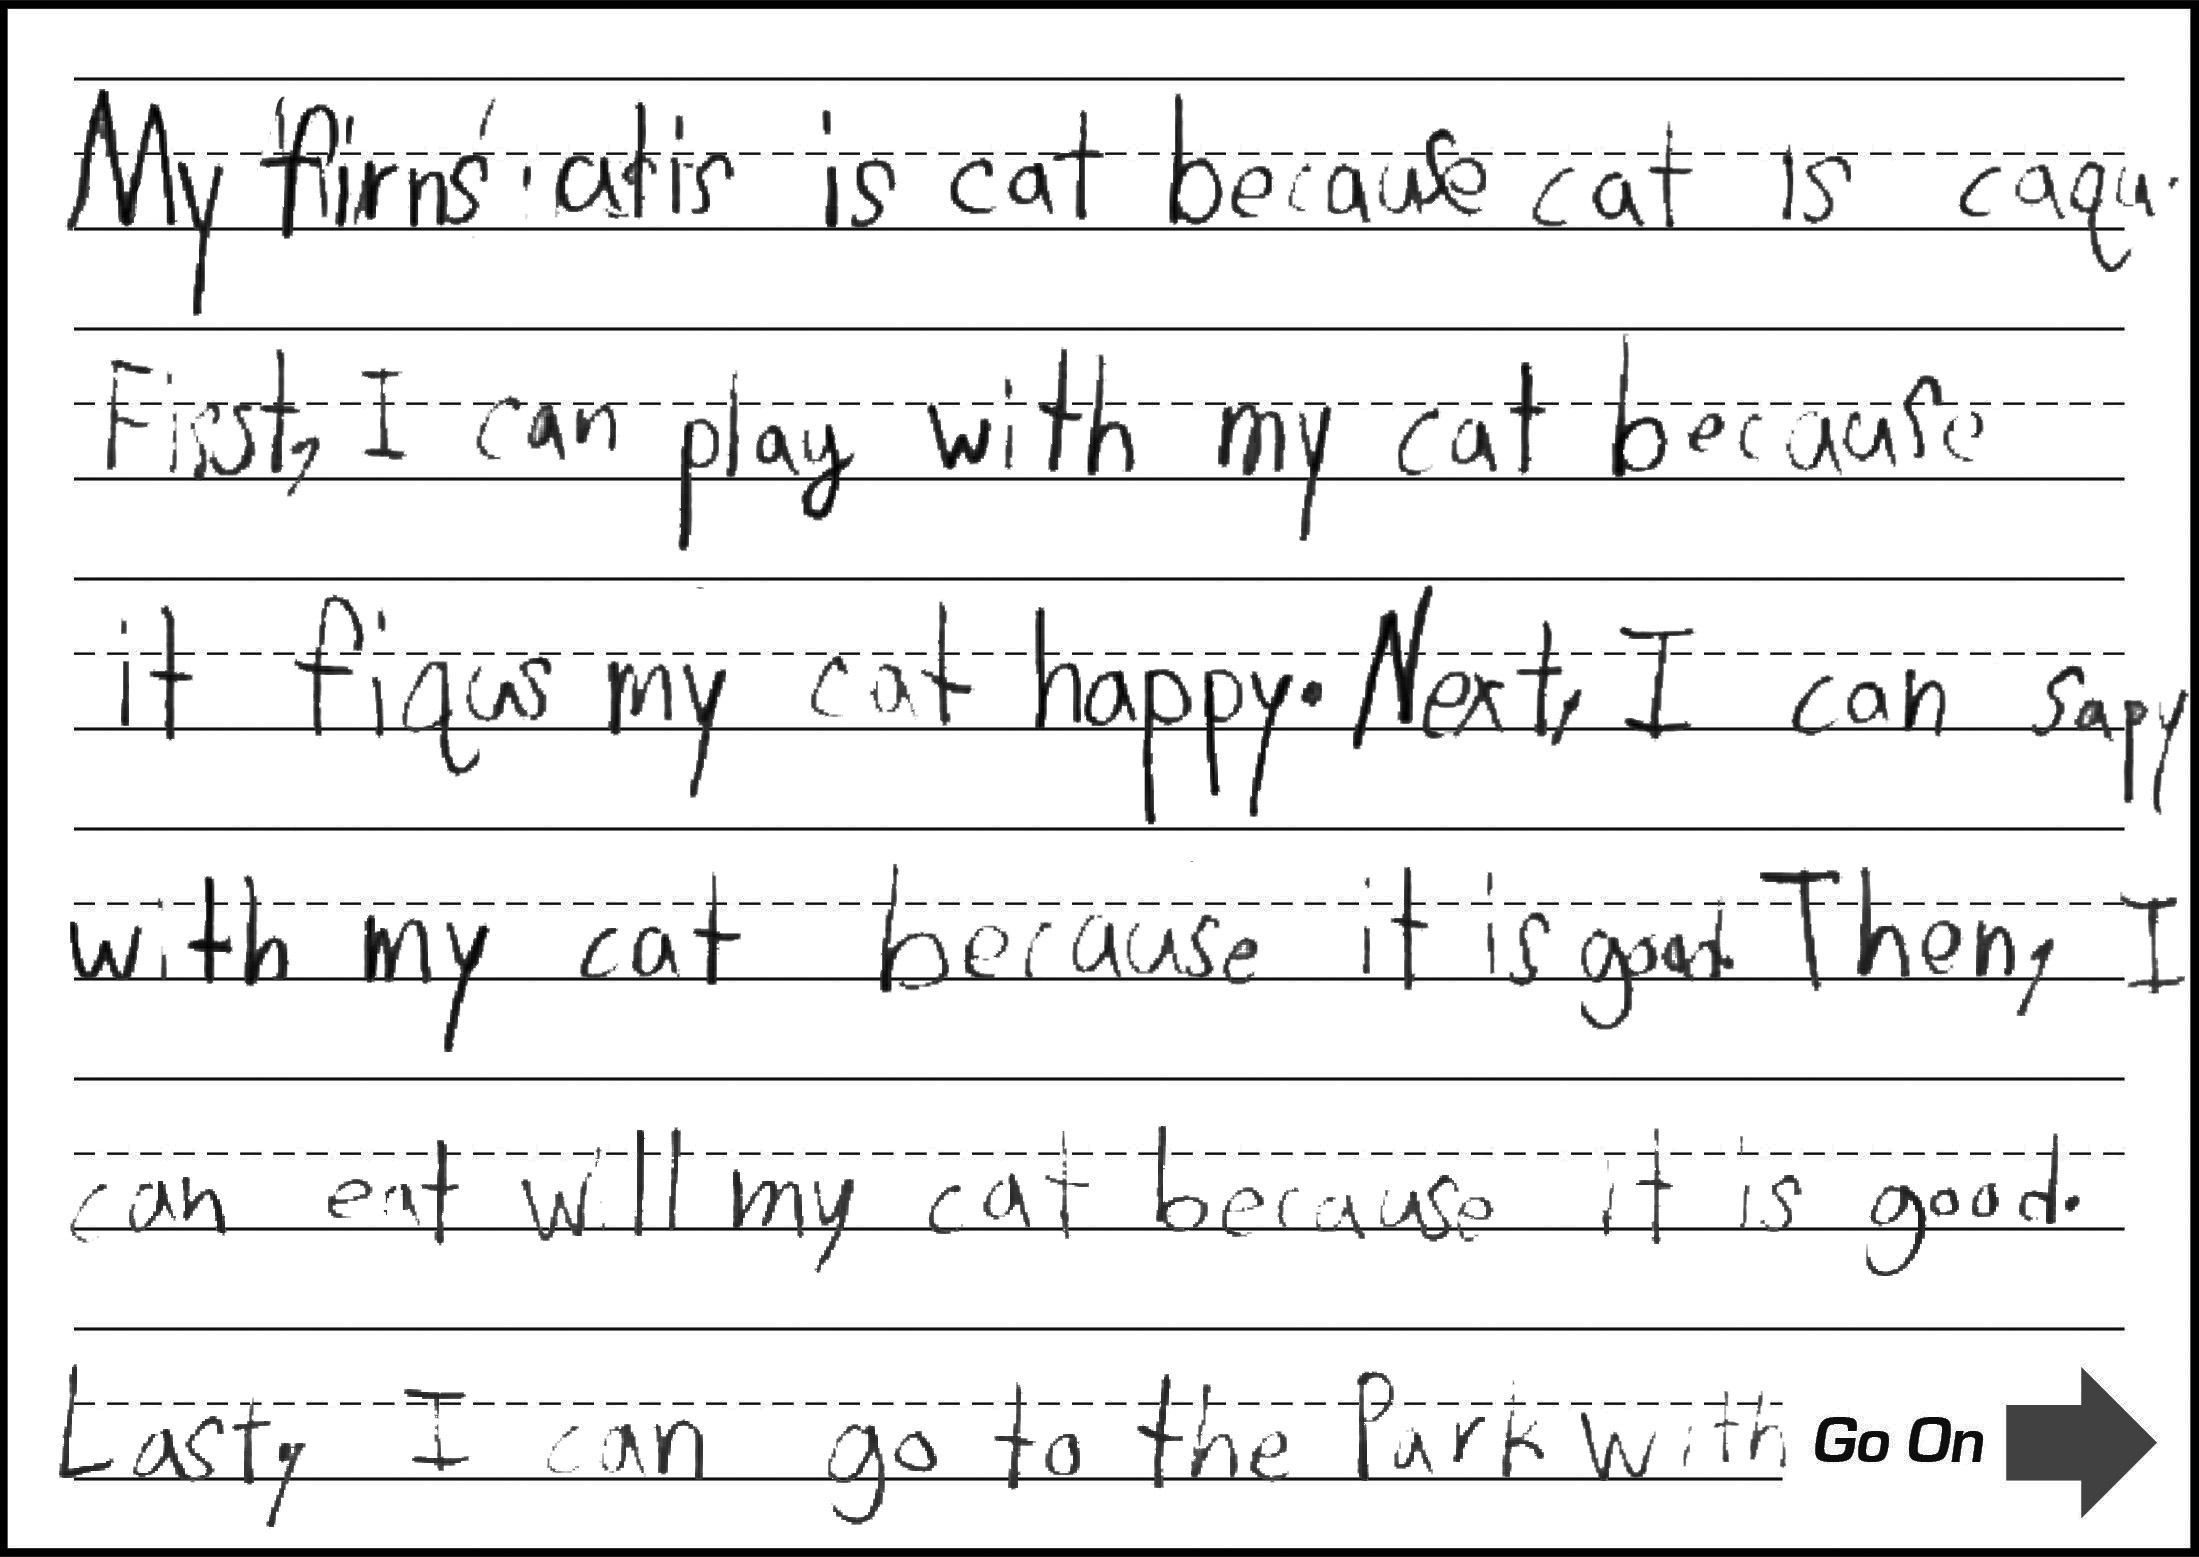 My firns atis is cat because cat is caqu.
First, I can play with my cat because
it fiqus my cat happy. Next, I can sapy
with my cat because it is good. Then, I
can eat will my cat because it is good.
Last, I can go to the Park with
Go On